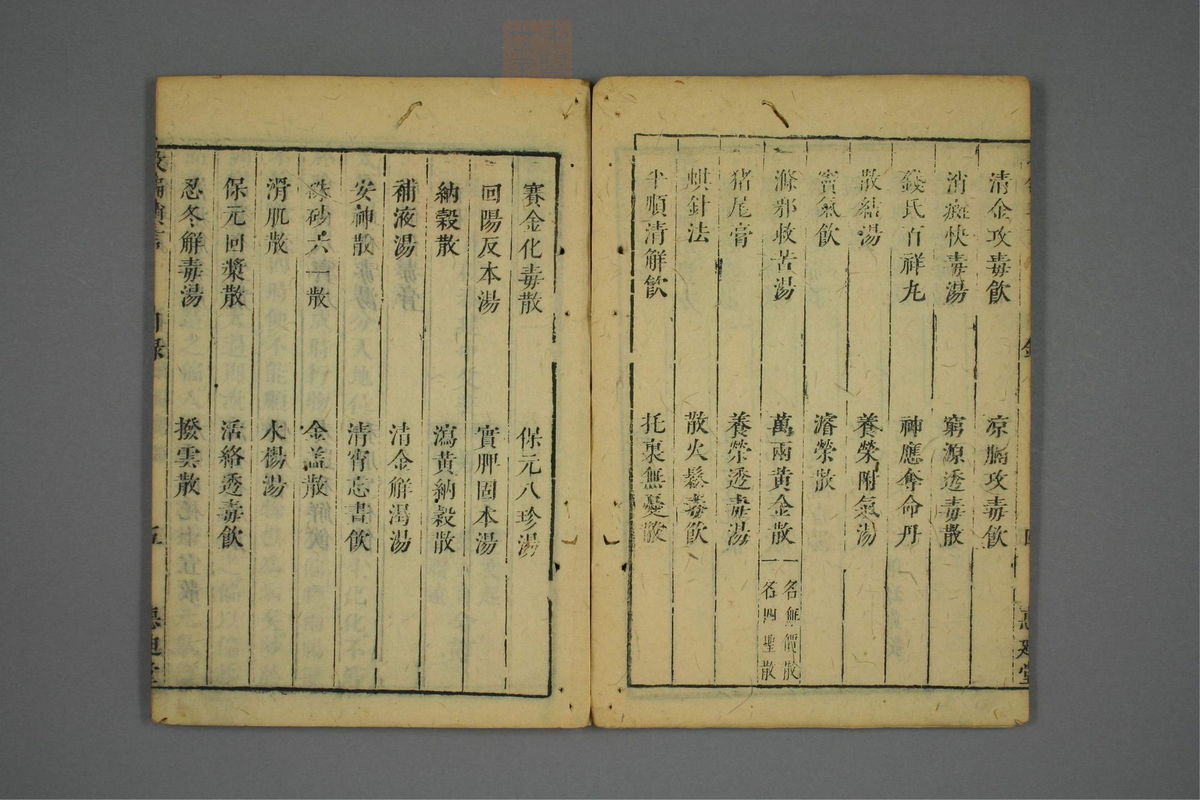 清金攻毒飲 凉膈攻毒飲
消癍快毒湯 窮源透毒散
錢氏百祥丸 神應奪命丹
散結湯 養榮附氣湯
寳氣飲 濬榮散
滌邪救苦湯 萬兩黄金散 一名無價散 一名四聖散
猪尾膏 養榮透毒湯
蜞針法 散火鬆毒飲
半順清解飲 托裏無憂散
賽金化毒散 保元八珍湯
回陽反本湯 實脾固本湯
納穀散 瀉黄納穀散
補液湯 清金解渴湯
安神散 清宵忘書飲
硃砂六一散 金盖散
滑肌散 水楊湯
保元回漿散 活絡透毒飲
忍冬解毒湯 撥雲散
目錄 五